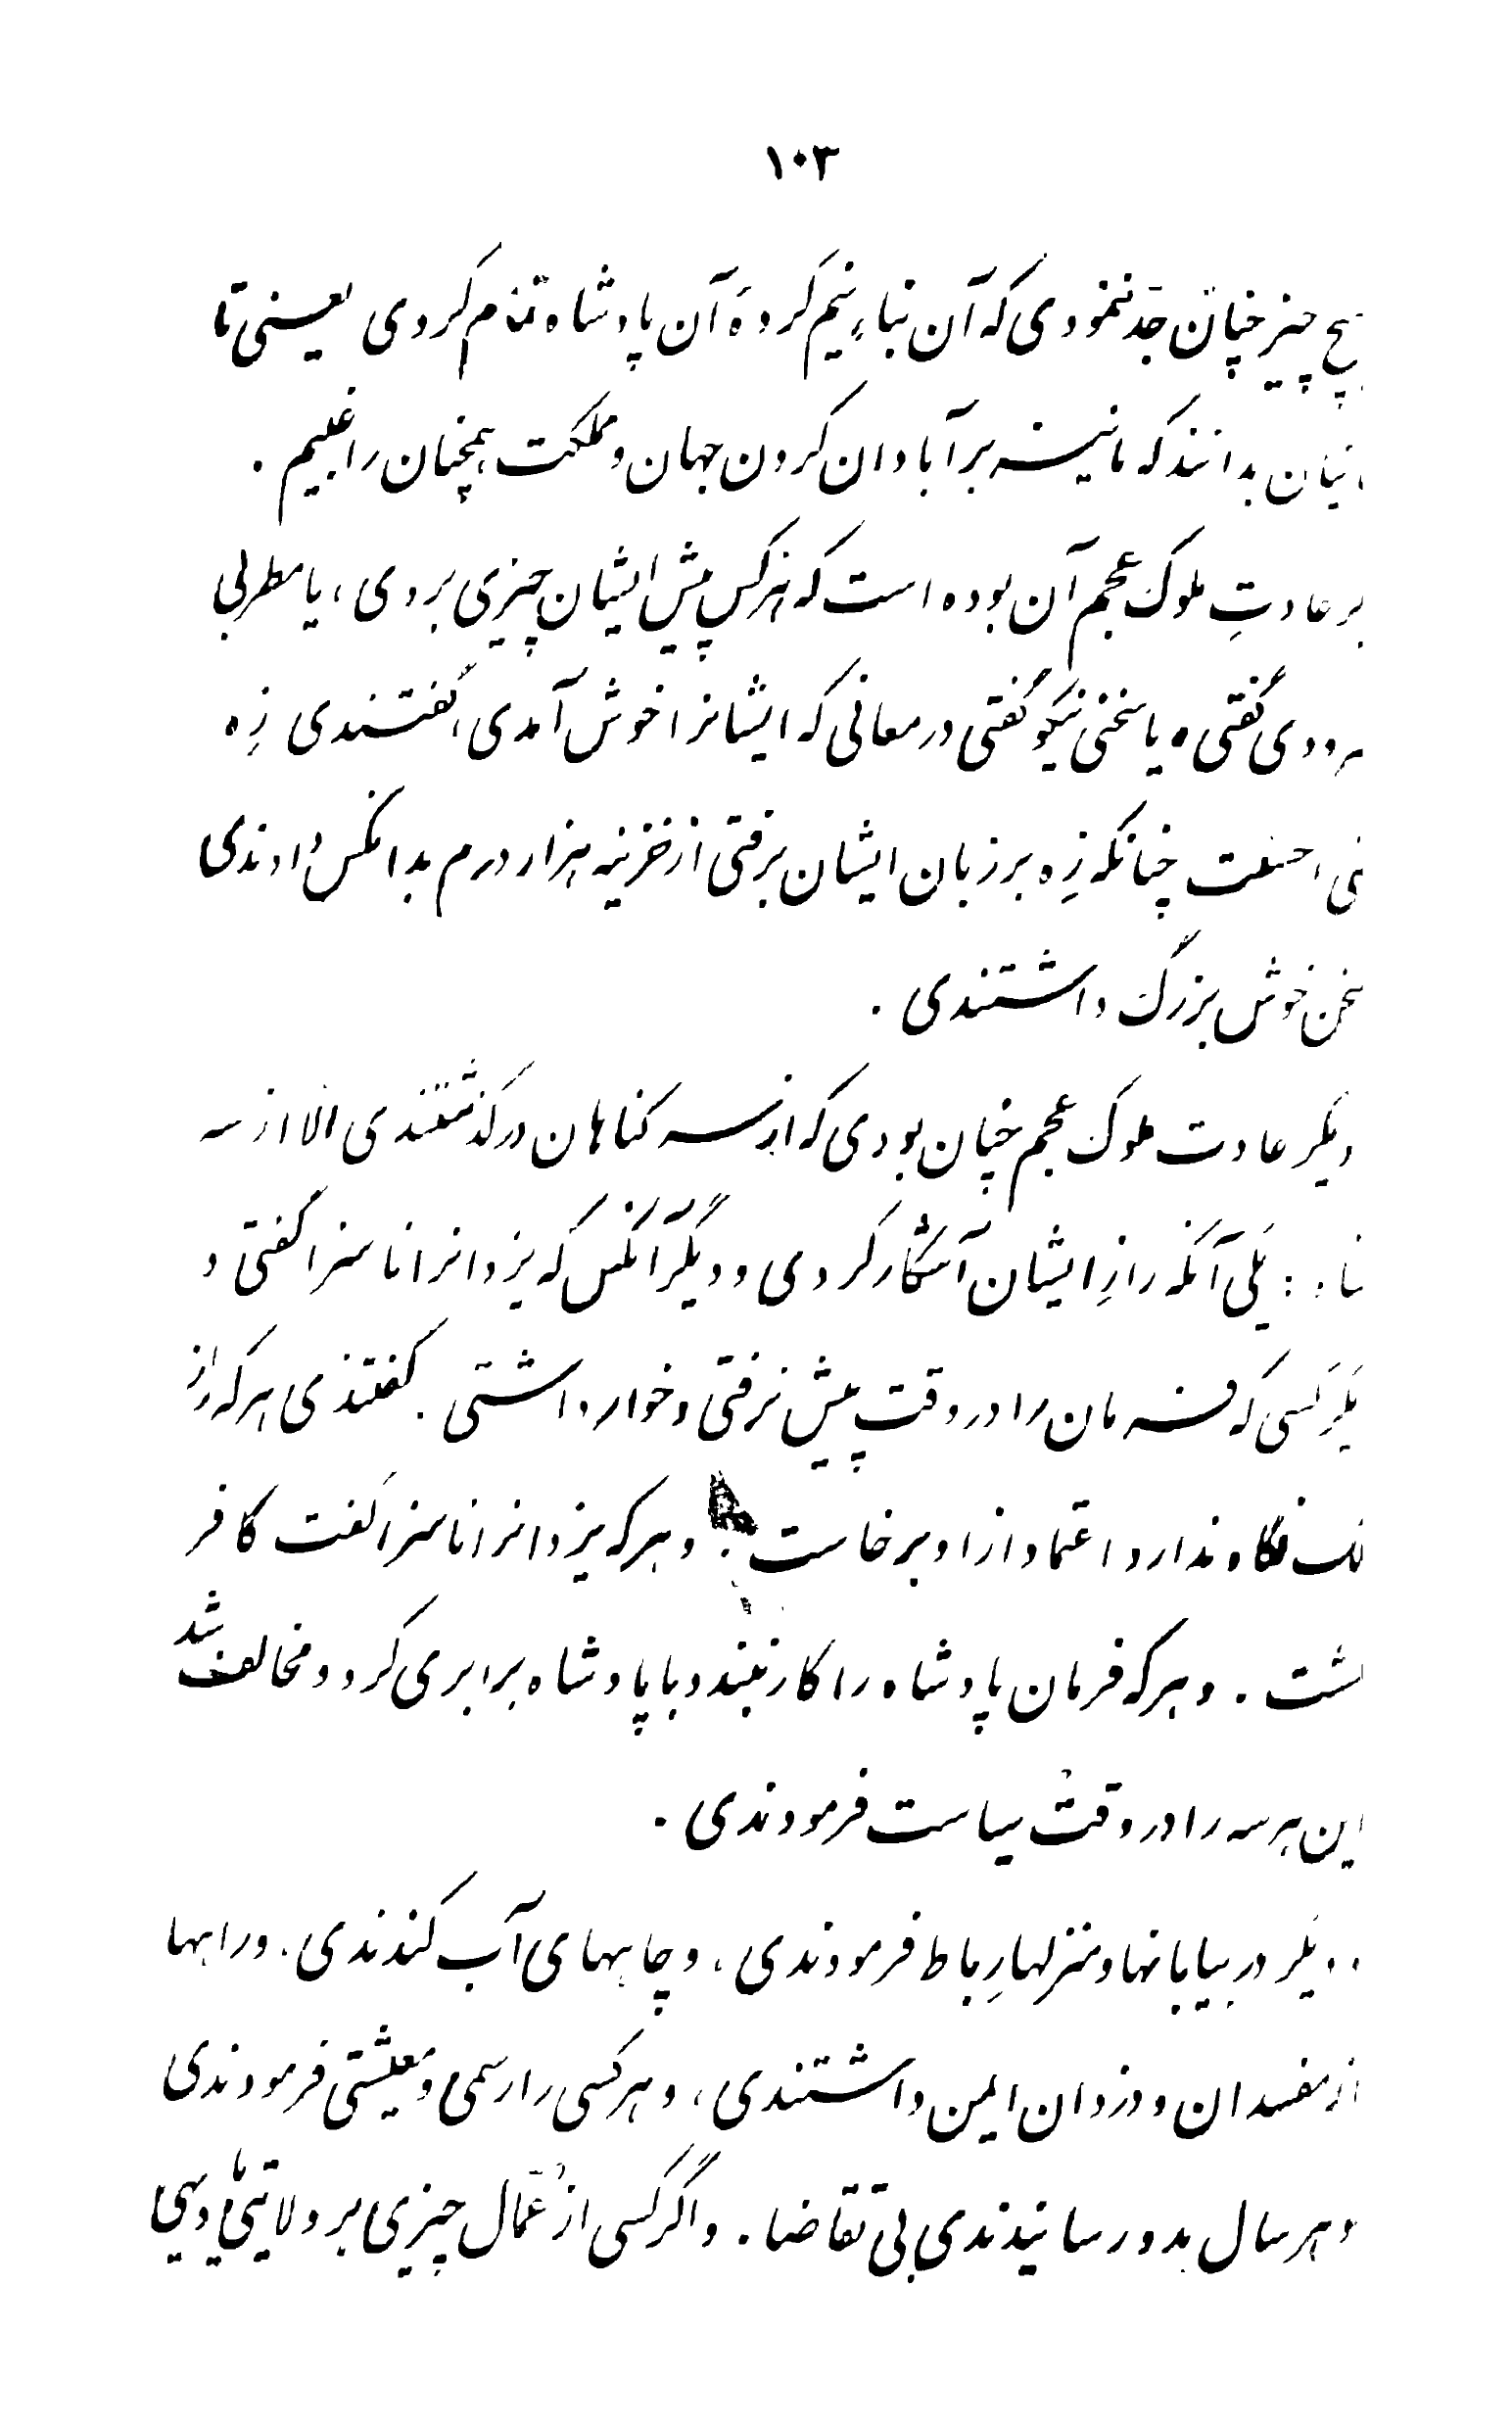 ۱۰۳
هیچ چیز چنان جدّ ننمودی که آن بناءِ نیم کردهٔ آن پادشاه تمام کردی یعنی تا
جهانیان بدانند که ما نیز بر آبادان کردن جهان و مملکت همچنان راغبیم .
دیگر عادتِ ملوک عجم آن بوده است که هر کس پیش ایشان چیزی بردی ، یا مطربی
سرودی گفتی ، یا سخنی نیکو گفتی در معانی که ایشانرا خوش آمدی ، گفتندی زِه
یعنی احسنت چنانکه زِه بر زبان ایشان برفتی از خزینه هزار درم بدانکس دادندی
سخن خوش بزرگ داشتندی .
دیگر عادت ملوک عجم چنان بودی که از سر گناهان درگذشتندی الّا از سه
گناه : یکی آنکه رازِ ایشان آشکار کردی و دیگر آنکس که یزدانرا ناسزا گفتی و
دیگر کسی که فرمان را در وقت پیش نرفتی و خوار داشتی . گفتندی هر که راز
ملک نگاه ندارد اعتماد از او برخاست . و هر که یزدانرا ناسزا گفت کافر
گشت . و هر که فرمان پادشاه را کار نبندد با پادشاه برابری کرد و مخالف شد
این هر سه را در وقت سیاست فرمودندی .
دیگر در بیابانها و منزلها رِباط فرمودندی ، و چاههای آب کندندی . و راهها
از مفسدان و دزدان ایمن داشتندی ، و هر کسی را رسمی و معیشتی فرمودندی
و هر سال بدو رسانیدندی بی تقاضا . و اگر کسی از عُمّال چیزی بر ولایتی یا دیهی